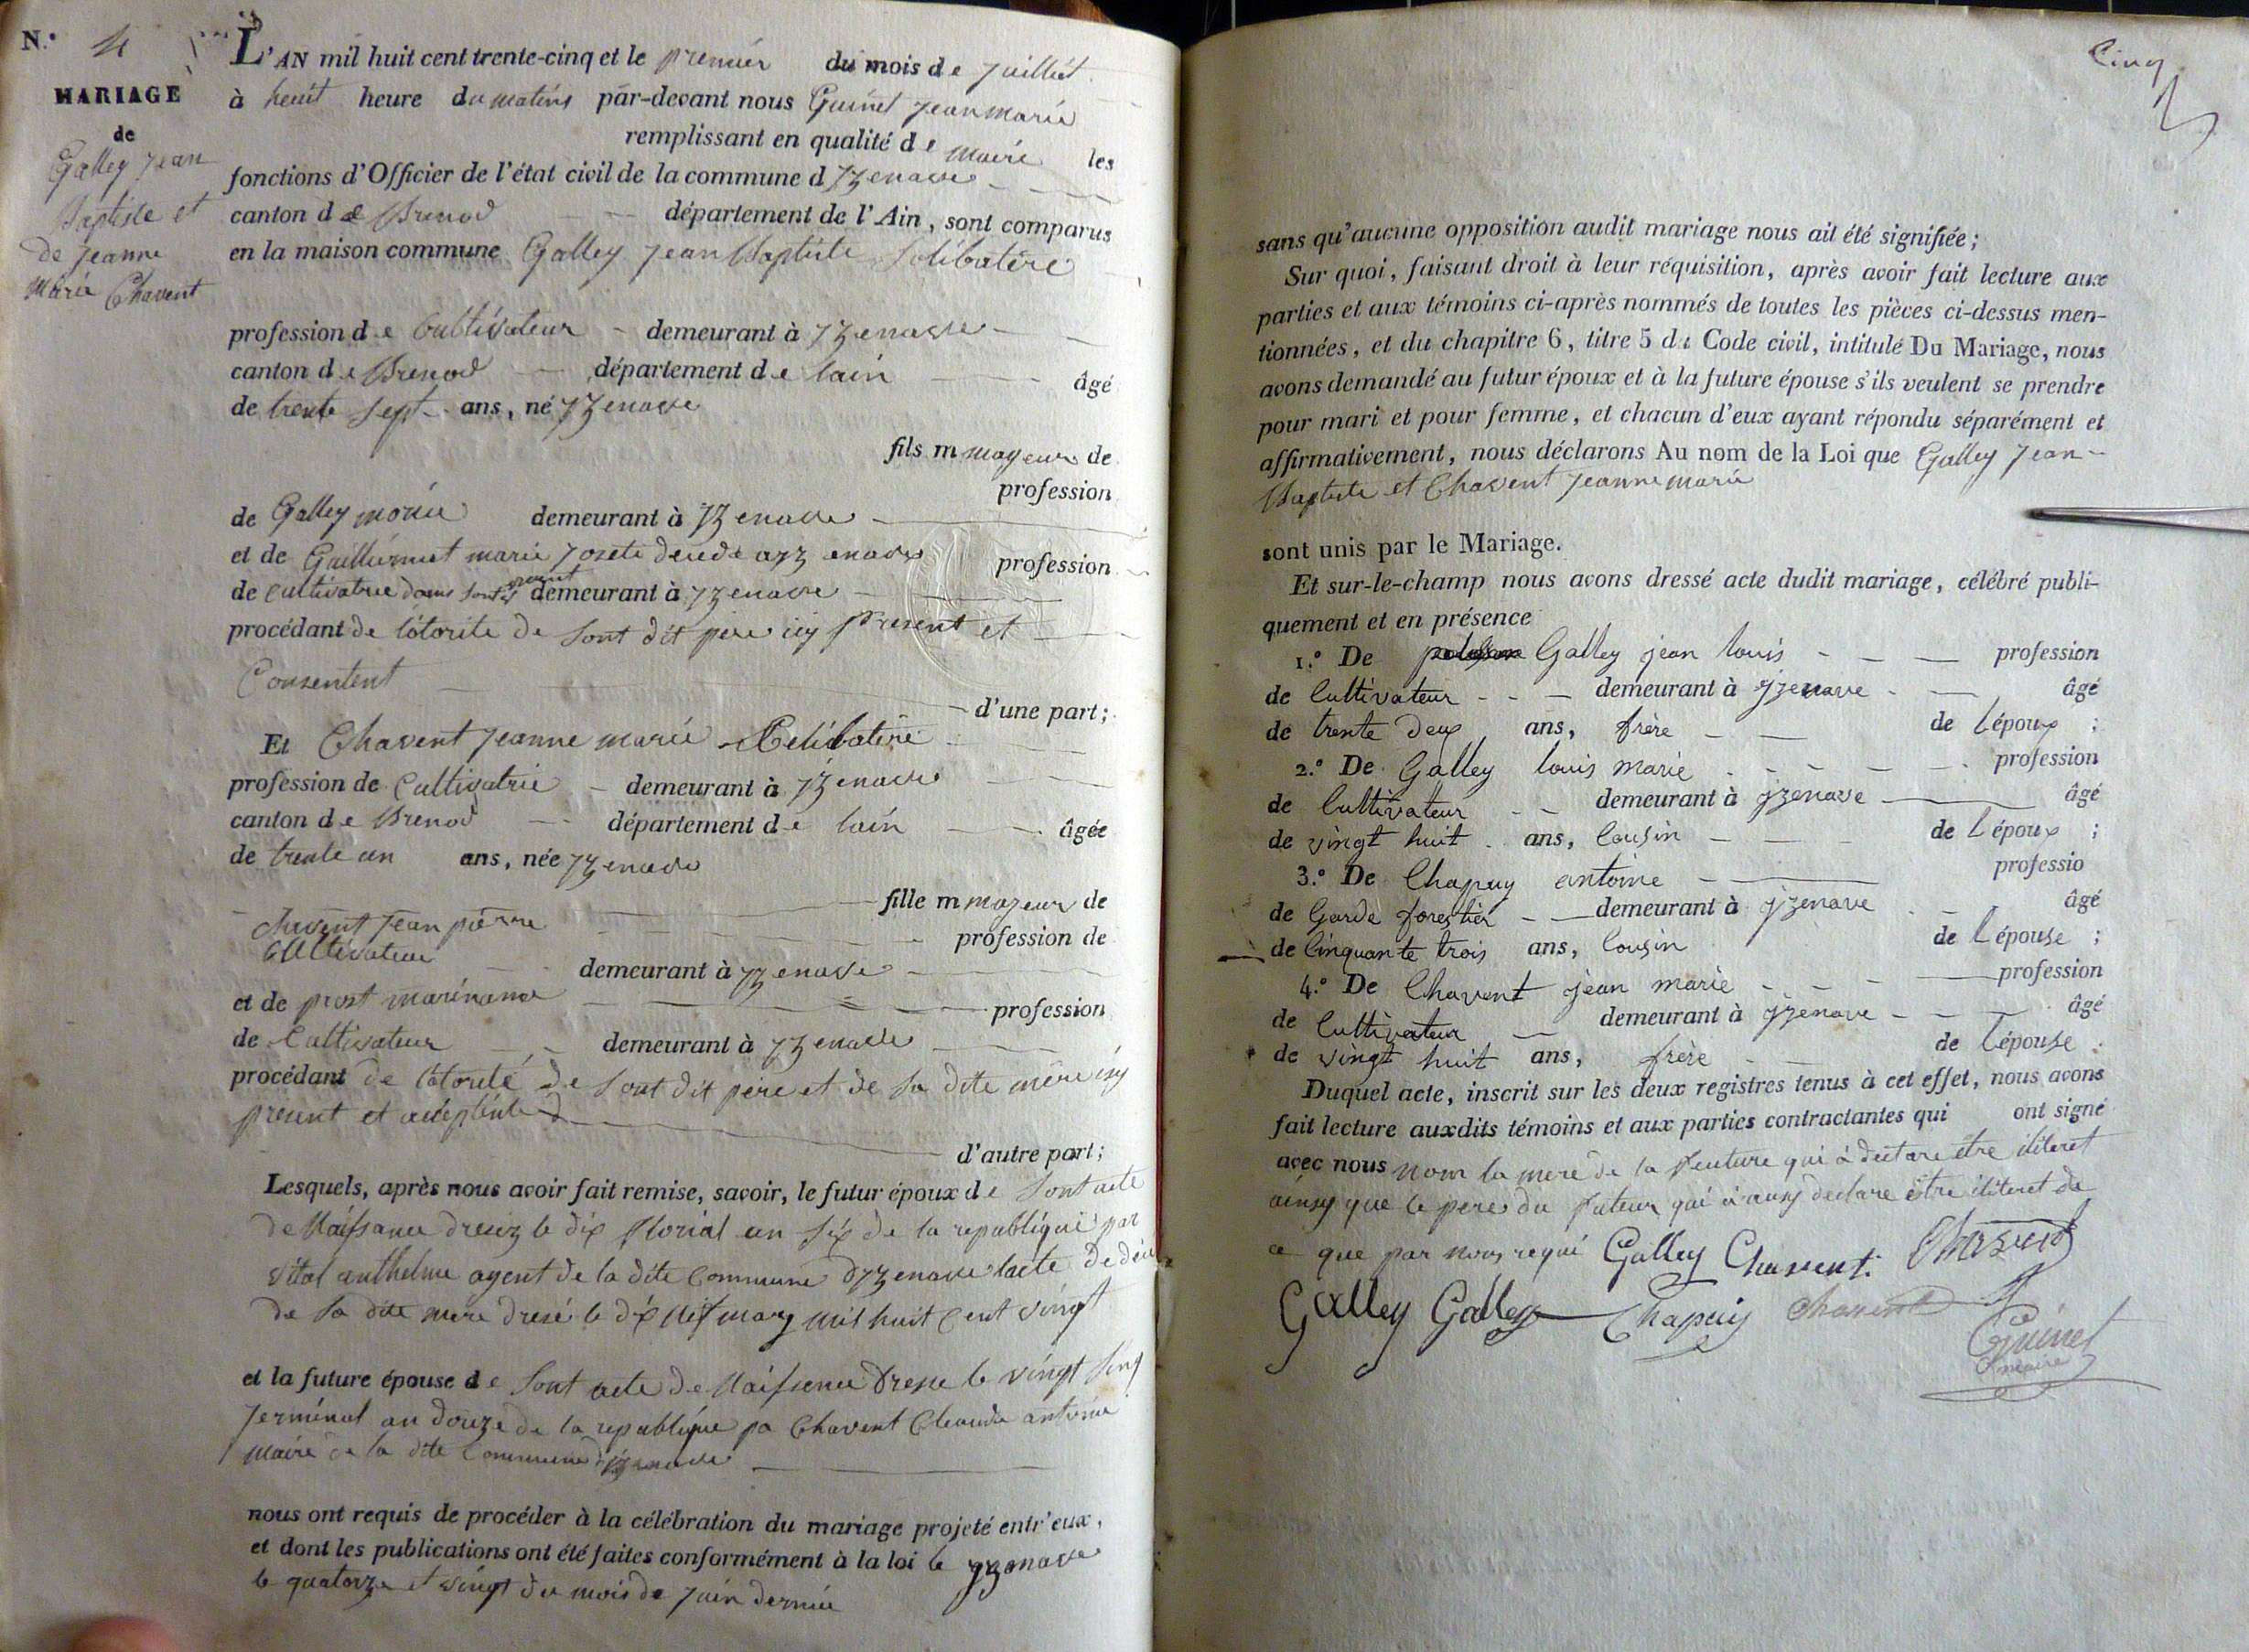 N.° 4
MARIAGE
de
Galley Jean
Baptiste et
de Jeanne
Marie Chavent
L'AN mil huit cent trente-cinq et le premier du mois de Juillet
à heuit heure du matins par-devant nous Guinet Jean marie
remplissant en qualité de maire les
fonctions d'Officier de l'état civil de la commune d yzenave
canton de Brenod département de l'Ain, sont comparus
en la maison commune Galley Jean Baptiste Solibatère
profession de Cultivateur demeurant à yzenave
canton de Brenod département de lain âgé
de trente sept ans, né yzenave
fils m mageur de
profession
de Galley morie demeurant à yzenave
et de Guillermet marie Josete decede a yzenave profession
de cultivatrie demeurant à yzenave
procédant de lotorite de sont dit père icy present et
Consentent
d'une part;
Et Chavent Jeanne marie Celibatère
profession de Cultivatrie demeurant à yzenave
canton de Brenod département de lain âgée
de trente un ans, née yzenave
fille m mageur de
Chavent Jean pierre
profession de
Cultivateur demeurant à yzenave
et de prost marianne profession
de Cultivateur demeurant à yzenave
procédant de lotorité de sont dit père et de sa dite mère icy
present et acceptente
d'autre part;
Lesquels, après nous avoir fait remise, savoir, le futur époux de sont acte
de Naissance dresez le dix florial an six de la republique par
vital anthelme agent de la dite Commune dyzenave lacte de déce
de sa dite mere dresé le dix neif mars mil huit cent vingt
et la future épouse de sont acte de Naissence dresse le vingt sinq
Jerminal an douze de la republique pa Chavent Claude antoine
maire de la dite Commune dyzenave
nous ont requis de procéder à la célébration du mariage projeté entr'eux,
et dont les publications ont été faites conformément à la loi le yzenave
le quatorze et vingt du mois de Juin dernié
Cinq
sans qu'aucune opposition audit mariage nous ait été signifiée;
Sur quoi, faisant droit à leur réquisition, après avoir fait lecture aux
parties et aux témoins ci-après nommés de toutes les pièces ci-dessus men-
tionnées, et du chapitre 6, titre 5 du Code civil, intitulé Du Mariage, nous
avons demandé au futur époux et à la future épouse s'ils veulent se prendre
pour mari et pour femme, et chacun d'eux ayant répondu séparément et
affirmativement, nous déclarons Au nom de la Loi que Galley Jean-
Baptiste et Chavent Jeanne marie
sont unis par le Mariage.
Et sur-le-champ nous avons dressé acte dudit mariage, célébré publi-
quement et en présence
1.° De Galley jean louis profession
de Cultivateur demeurant à yzenave âgé
de trente deux ans, frère de lépoux ;
2.° De Galley louis marie profession
de Cultivateur demeurant à yzenave âgé
de vingt huit ans, Cousin de lépoux ;
3.° De Chapuy antoine professio
de Garde forestier demeurant à yzenave âgé
de Cinquante trois ans, Cousin de lépouse ;
4.° De Chavent jean marie profession
de Cultivateur demeurant à yzenave âgé
de vingt huit ans, frère de lépouse.
Duquel acte, inscrit sur les deux registres tenus à cet effet, nous avons
fait lecture auxdits témoins et aux parties contractantes qui ont signé
avec nous nom la mere de la feuture qui à declare être iliteret
ainsy que le pere du futeur qui à ausy declare être iliteret de
ce que par nous requi Galley Chavent. Chavent
Galley Galley Chapuy Chavent
Guinet
maire